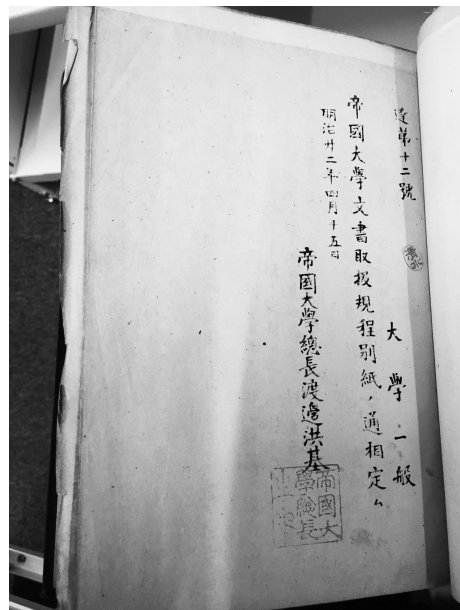 達第十二號
大學一般
帝國大學文書取扱規程別紙ノ通相定ム
明治廿二年四月十五日
帝國大學總長渡邊洪基
帝國大
學總長